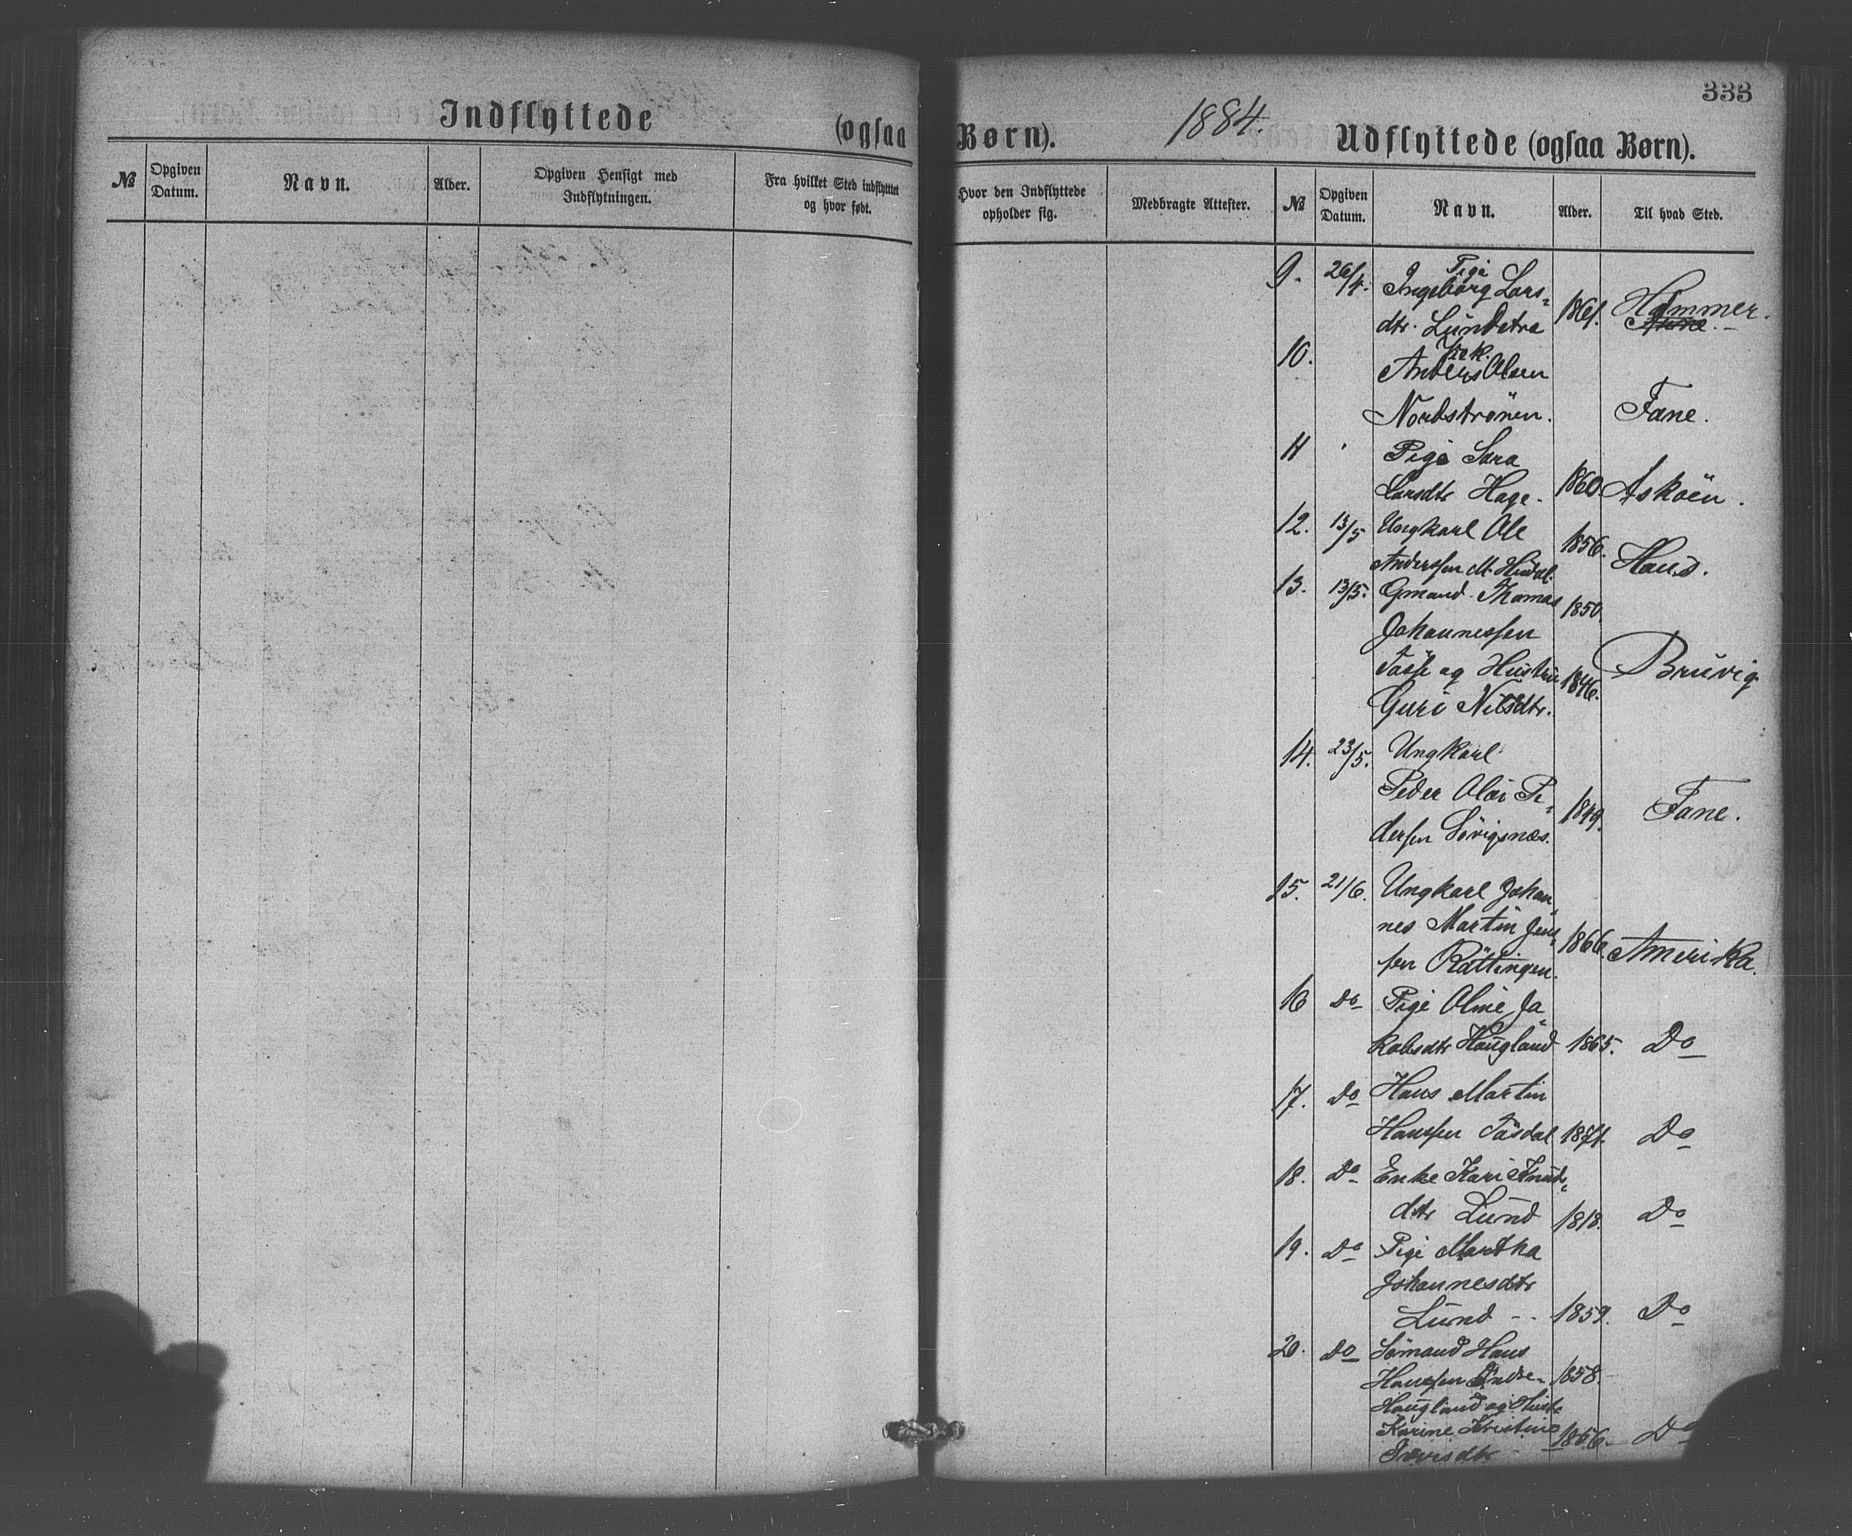 333
Indflyttede (ogsaa Børn).
1884.
Udflyttede (ogsaa Børn).
№
Opgiven Datum.
Navn.
Alder.
Opgiven Hensigt med Indflytningen.
Fra hvilket Sted indflyttet og hvor født.
Hvor den Indflyttede opholder sig.
Medbragte Attester.
№
Opgiven Datum.
Navn.
Alder.
Til hvad Sted.
9. 26/4. Pige
Ingeborg Lars-
dtr. Lundetræ 1861. Hammer.
10.
Anders Olsen
Nordströnen. Fane.
11 Pige Sara
Larsdtr Hage. 1860. Askøen.
12. 13/5 Ungkarl Ole 1856.
Anderssen M. Hindal. Haus.
13. 13/5. Gmand Thomas 1850.
Johannessen
og Hustru 1846. Bruvig
Guri Nilsdtr.
14. 23/5. Ungkarl
Peder Olai Pe-
dersen Sörvignæs. 1849. Fane.
15. 21/6. Ungkarl Johan-
nes Martin Jens-
sen Röttingen. 1866. Amerika.
16 Do Pige Oline Ja-
kobsdtr Haugland 1865. Do
17. Do Hans Martin
Hanssen Tøsdal 1871. Do
18. Do Enke Kari Knuds-
dtr Lund 1818. Do
19. Do Pige Martha
Johannesdtr
Lund 1859. Do
20. Do Sömand Hans
Hanssen Indre- 1858.
Haugland og Hustr
Karine Kristine 1856. Do